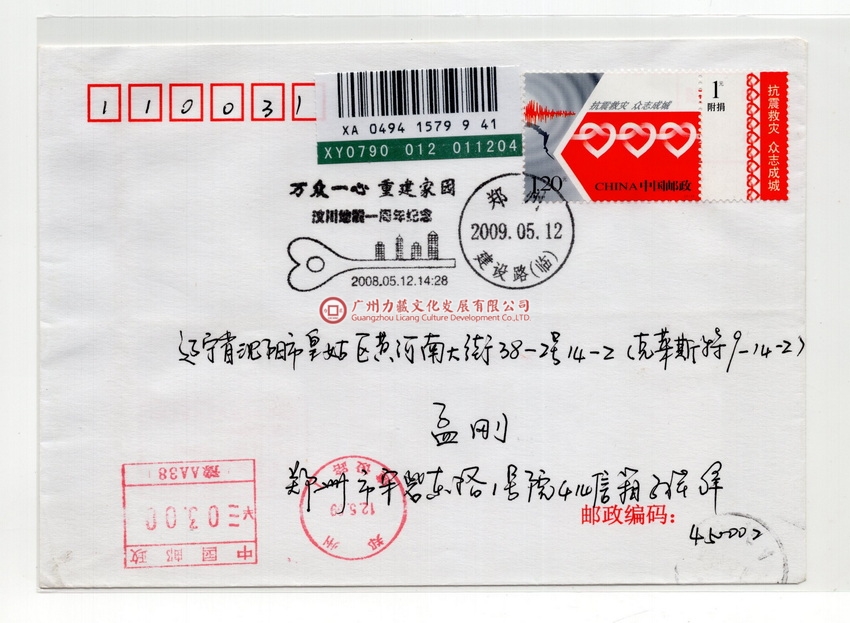 110031
XA 0494 1579 9 41
XY0790 012 011204
抗震救灾 众志成城
1元
附捐
抗震救灾 众志成城
1.20元
CHINA 中国邮政
万众一心 重建家园
汶川地震一周年纪念
2008.05.12.14:28
郑州
2009.05.12
建设路(临)
广州力藏文化发展有限公司
Guangzhou Licang Culture Development Co.,LTD.
辽宁省沈阳市皇姑区黄河南大街38-2号14-2(克莱斯特9-14-2)
孟刚
郑州市 东路1号院414信箱
邮政编码：
450002
豫AA38
03.00
中国邮政
建设路
12.5.09
郑州